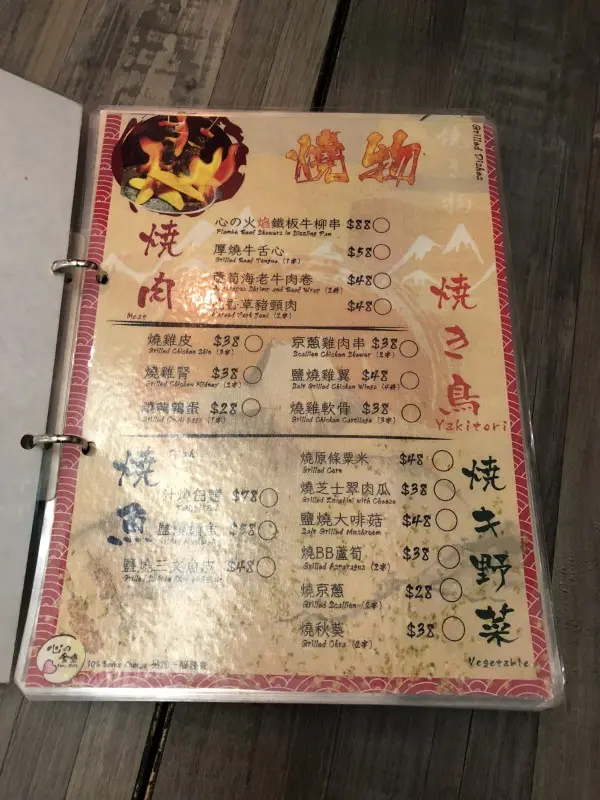 燒物
Grilled Dishes
燒肉
Meat
心の火焰鐵板牛柳串 $88
Flambe Beef Skewers in Sizzling Pan
厚燒牛舌心 $58
Grilled Beef Tongue (1串)
蘆筍海老牛肉卷 $48
Shrimp and Beef Wrap (2件)
草豬頸肉 $48
Pork Jowl (2串)
焼き鳥
Yakitori
燒雞皮 $38
Grilled Chicken Skin (3串)
燒雞腎 $38
Grilled Chicken Kidney (2串)
燒鵪鶉蛋 $28
Grilled
京蔥雞肉串 $38
Scallion Chicken Skewer (2串)
鹽燒雞翼 $48
Salt Grilled Chicken Wings (4件)
燒雞軟骨 $38
Grilled Chicken Cartilage (3串)
燒魚
汁燒白鱔 $78
鹽燒 $58
鹽燒三文魚皮 $48
燒き野菜
Vegetable
燒原條粟米 $48
Grilled Corn
燒芝士翠肉瓜 $38
Grilled Zucchini with Cheese
鹽燒大啡菇 $48
Salt Grilled Mushroom
燒BB蘆筍 $38
Grilled Asparagus (2串)
燒京蔥 $28
Grilled Scallion (2串)
燒秋葵 $38
Grilled Okra (2串)
心の食堂
10% Service Charge 另加一服務費